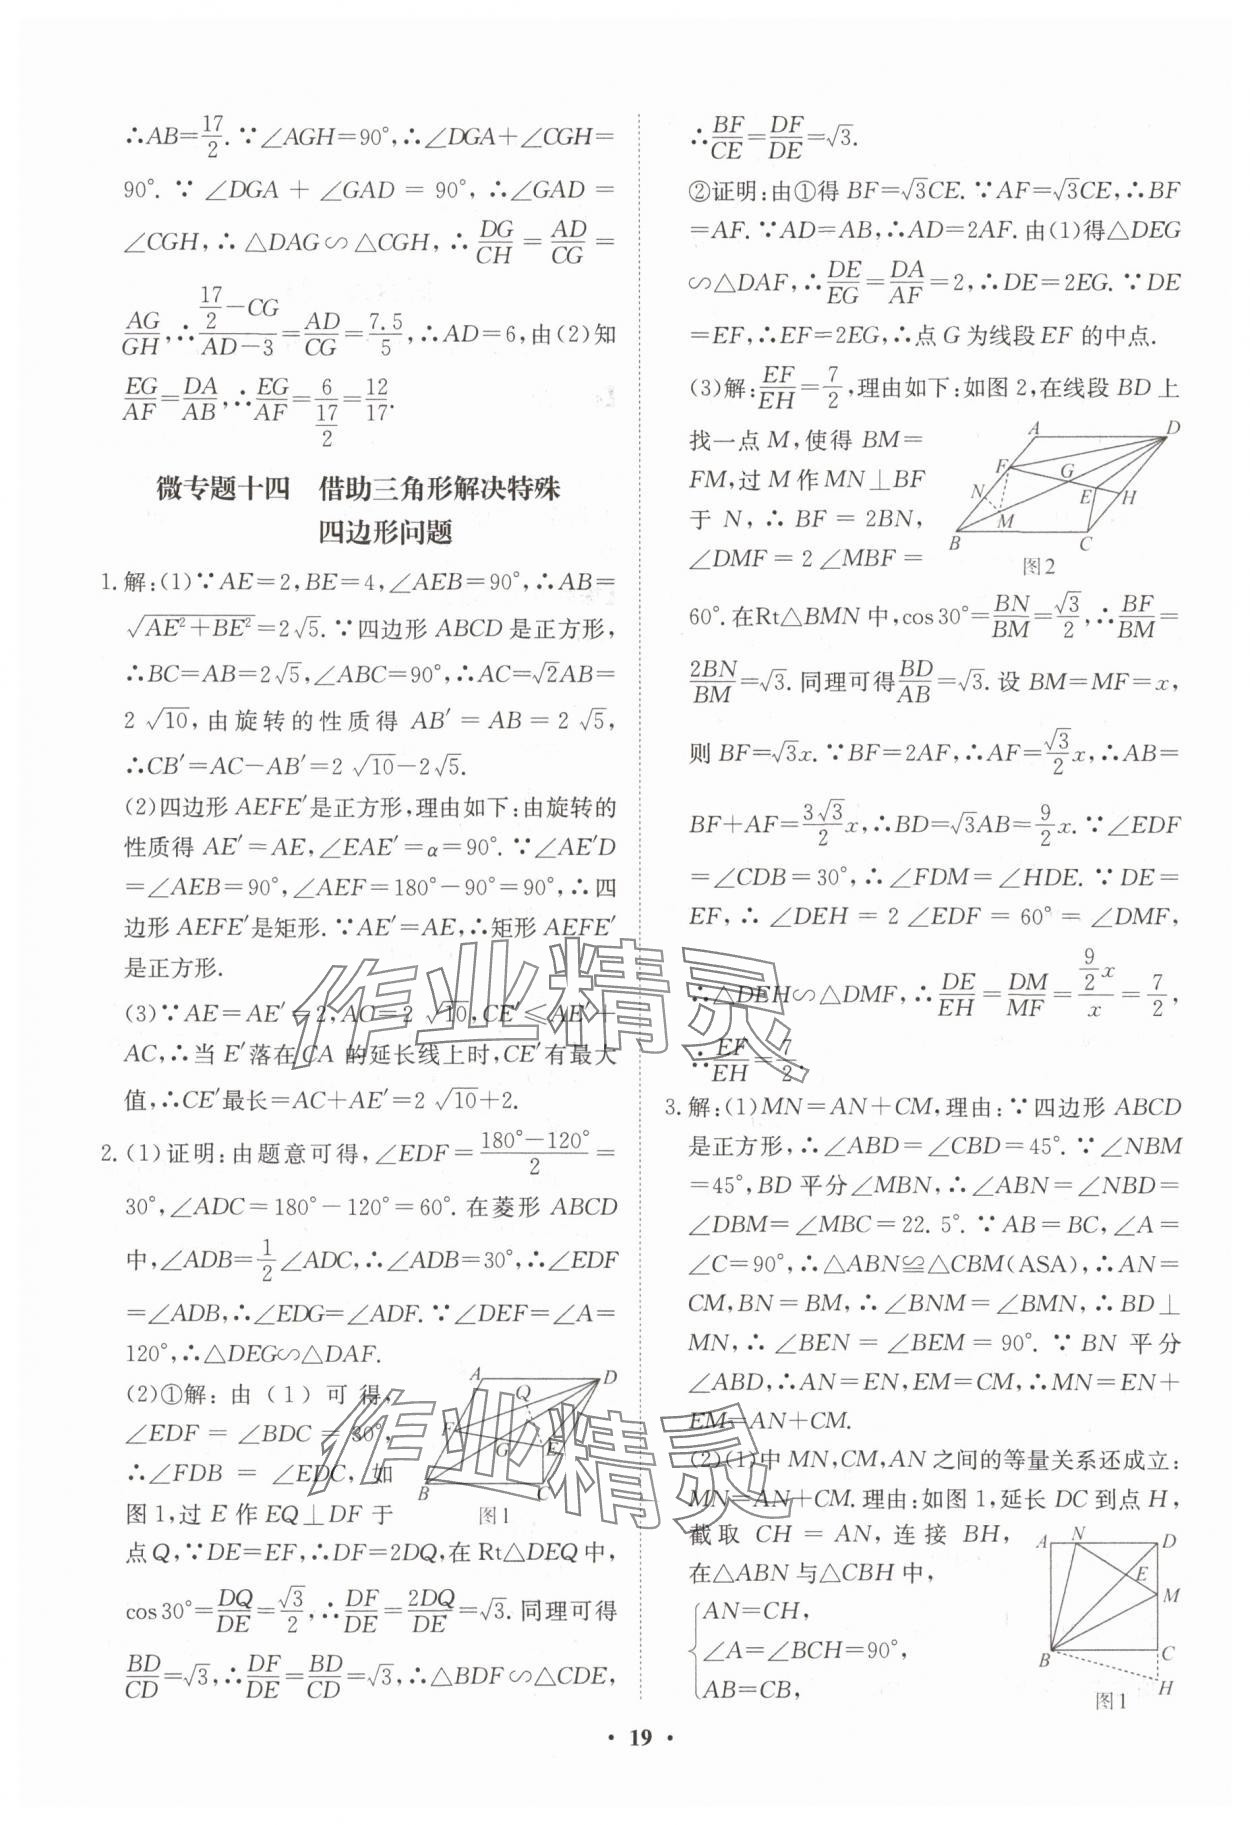 ∴AB=17/2. ∵∠AGH=90°,∴∠DGA+∠CGH=
90°. ∵ ∠DGA + ∠GAD = 90°, ∴∠GAD =
∠CGH,∴ △DAG∽△CGH, ∴ DG/CH = AD/CG =
AG/GH,∴ (17/2-CG)/(AD-3)=AD/CG=7.5/5,∴AD=6,由(2)知
EG/AF=DA/AB,∴EG/AF=6/(17/2)=12/17.
微专题十四　借助三角形解决特殊
四边形问题
1. 解:(1)∵AE=2,BE=4,∠AEB=90°,∴AB=
√(AE²+BE²)=2√5. ∵四边形 ABCD 是正方形,
∴BC=AB=2√5,∠ABC=90°,∴AC=√2AB=
2√10,由旋转的性质得 AB′=AB=2√5,
∴CB′=AC-AB′=2√10-2√5.
(2)四边形 AEFE′是正方形,理由如下:由旋转的
性质得 AE′=AE,∠EAE′=α=90°. ∵∠AE′D
=∠AEB=90°,∠AEF=180°-90°=90°,∴四
边形 AEFE′是矩形. ∵AE′=AE,∴矩形 AEFE′
是正方形.
(3)∵AE=AE′=2,AC=2√10,CE′≤AE′+
AC,∴当 E′落在 CA 的延长线上时,CE′有最大
值,∴CE′最长=AC+AE′=2√10+2.
2. (1)证明:由题意可得,∠EDF=(180°-120°)/2=
30°,∠ADC=180°-120°=60°. 在菱形 ABCD
中,∠ADB=1/2∠ADC,∴∠ADB=30°,∴∠EDF
=∠ADB,∴∠EDG=∠ADF. ∵∠DEF=∠A=
120°,∴△DEG∽△DAF.
(2)①解:由(1)可得,
∠EDF = ∠BDC = 30°,
∴∠FDB = ∠EDC,如
图1,过 E 作 EQ⊥DF 于
A
D
Q
F
G
E
B
C
图1
点 Q,∵DE=EF,∴DF=2DQ,在 Rt△DEQ 中,
cos30°=DQ/DE=√3/2,∴DF/DE=2DQ/DE=√3. 同理可得
BD/CD=√3,∴DF/DE=BD/CD=√3,∴△BDF∽△CDE,
∴BF/CE=DF/DE=√3.
②证明:由①得 BF=√3CE. ∵AF=√3CE,∴BF
=AF. ∵AD=AB,∴AD=2AF. 由(1)得△DEG
∽△DAF,∴DE/EG=DA/AF=2,∴DE=2EG. ∵DE
=EF,∴EF=2EG,∴点 G 为线段 EF 的中点.
(3)解:EF/EH=7/2,理由如下:如图2,在线段 BD 上
找一点 M,使得 BM=
FM,过 M 作 MN⊥BF
于 N,∴ BF = 2BN,
∠DMF = 2∠MBF =
A
D
F
G
N
E
H
M
B
C
图2
60°. 在Rt△BMN 中,cos30°=BN/BM=√3/2,∴BF/BM=
2BN/BM=√3. 同理可得BD/AB=√3. 设 BM=MF=x,
则 BF=√3x. ∵BF=2AF,∴AF=√3/2x,∴AB=
BF+AF=3√3/2x,∴BD=√3AB=9/2x. ∵∠EDF
=∠CDB=30°,∴∠FDM=∠HDE. ∵DE=
EF,∴∠DEH=2∠EDF=60°=∠DMF,
∴△DEH∽△DMF,∴DE/EH=DM/MF=(9/2x)/x=7/2,
∵EF/EH=7/2.
3. 解:(1)MN=AN+CM,理由:∵四边形 ABCD
是正方形,∴∠ABD=∠CBD=45°. ∵∠NBM
=45°,BD 平分∠MBN,∴∠ABN=∠NBD=
∠DBM=∠MBC=22.5°. ∵AB=BC,∠A=
∠C=90°,∴△ABN≌△CBM(ASA),∴AN=
CM,BN=BM,∴∠BNM=∠BMN,∴BD⊥
MN,∴∠BEN=∠BEM=90°. ∵BN 平分
∠ABD,∴AN=EN,EM=CM,∴MN=EN+
EM=AN+CM.
(2)(1)中 MN,CM,AN 之间的等量关系还成立:
MN=AN+CM.理由:如图1,延长 DC 到点 H,
截取 CH=AN,连接 BH,
在△ABN 与△CBH 中,
{AN=CH,
∠A=∠BCH=90°,
AB=CB,
A
N
D
E
M
B
C
H
图1
• 19 •
作业精灵
作业精灵